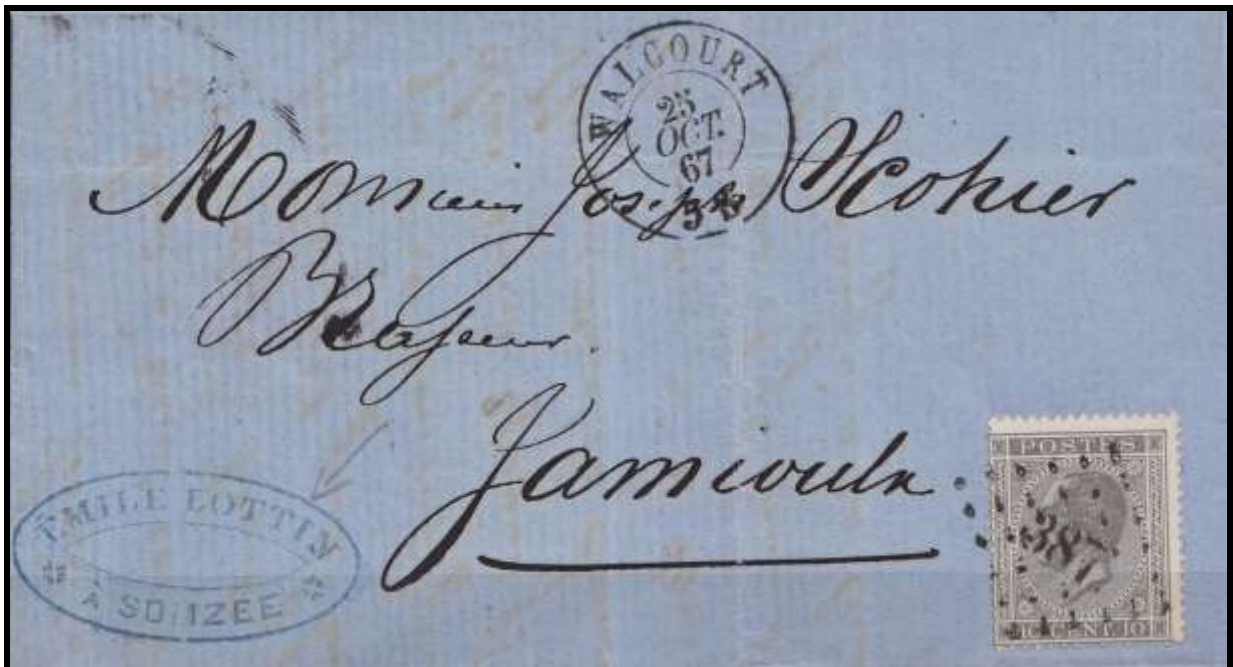 WALCOURT
25
OCT.
67
Monsieur Joseph Scohier
Brasseur.
Jamioulx
EMILE LOTTIN
A SO IZÉE
POSTES
10 CENT. 10
387